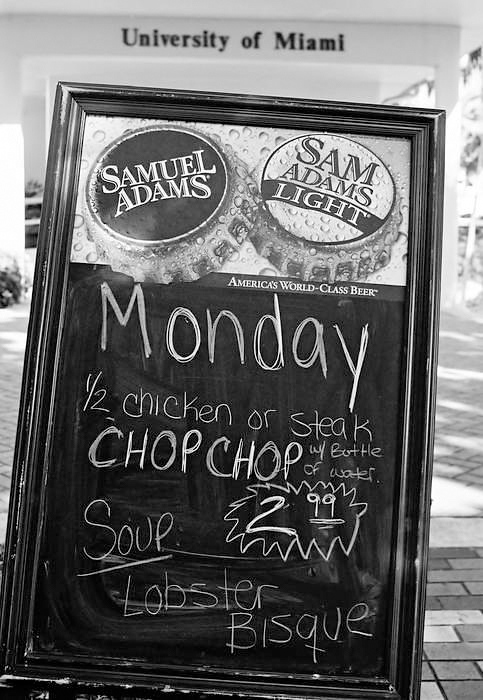 University of Miami
SAMUEL ADAMS
SAM ADAMS LIGHT
AMERICA'S WORLD-CLASS BEER
Monday
1/2 chicken or steak
CHOP CHOP w/ Bottle of water.
2 99
Soup:
Lobster
Bisque